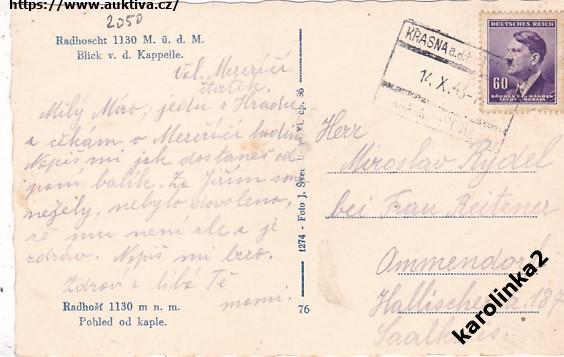 https://www.auktiva.cz/
2050
Radhoscht 1130 M. ü. d. M.
Blick v. d. Kappelle.
Val. Meziříčí
čtvrtek.
Milý Míro; jedu z Hradce
a čekám v Meziříčí hodinu
Napiš mi jak dostaneš od
paní balík. Za Jiřím sme
nejely, nebylo dovoleno,
že mu není ale a je
zdráv. Napiš mi brzo.
Zdraví a líbá Tě
mami.
Radhošť 1130 m n. m.
Pohled od kaple.
76
1274 - Foto J.
KRASNA a.d.
14.X.43
DEUTSCHES REICH
60
BÖHMEN U. MÄHREN
ČECHY A MORAVA
Herr
Miroslav Rýdel
bei Frau Reitzner
Ammendorf
Hallische 187
Saalkreis
karolinka2